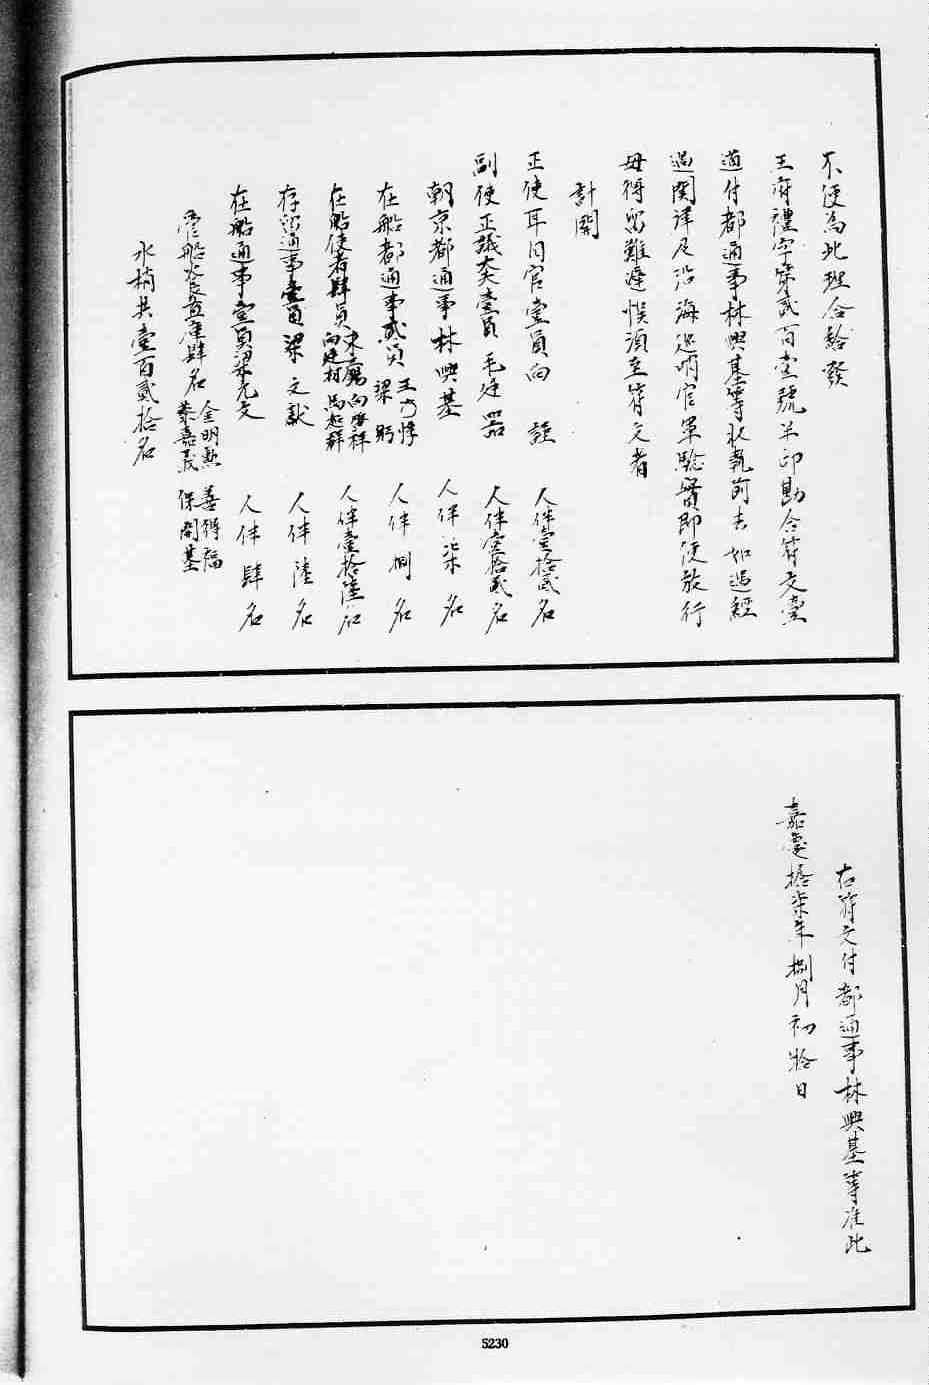 不便為此理合給發
王府禮字第貳百壹號半印勘合符文壹
道付都通事林興基等收執前去如遇經
過關津及沿海巡哨官軍驗實即便放行
毋得留難遲悞須至符文者
計開
正使耳目官壹員向 謹 人伴壹拾貳名
副使正議大夫壹員毛廷器 人伴壹拾貳名
朝京都通事林興基 人伴柒名
在船都通事貳員 王 惇 梁 躬 人伴捌名
在船使者肆員 向廷材 馬起群 人伴壹拾陸名
存留通事壹員梁文猷 人伴陸名
在船通事壹員梁光文 人伴肆名
管船火長直庫肆名 金明煕 蔡嘉茂 善得福 保開基
水梢共壹百貳拾名
右符文付都通事林興基等准此
嘉慶拾柒年捌月初拾日
5230